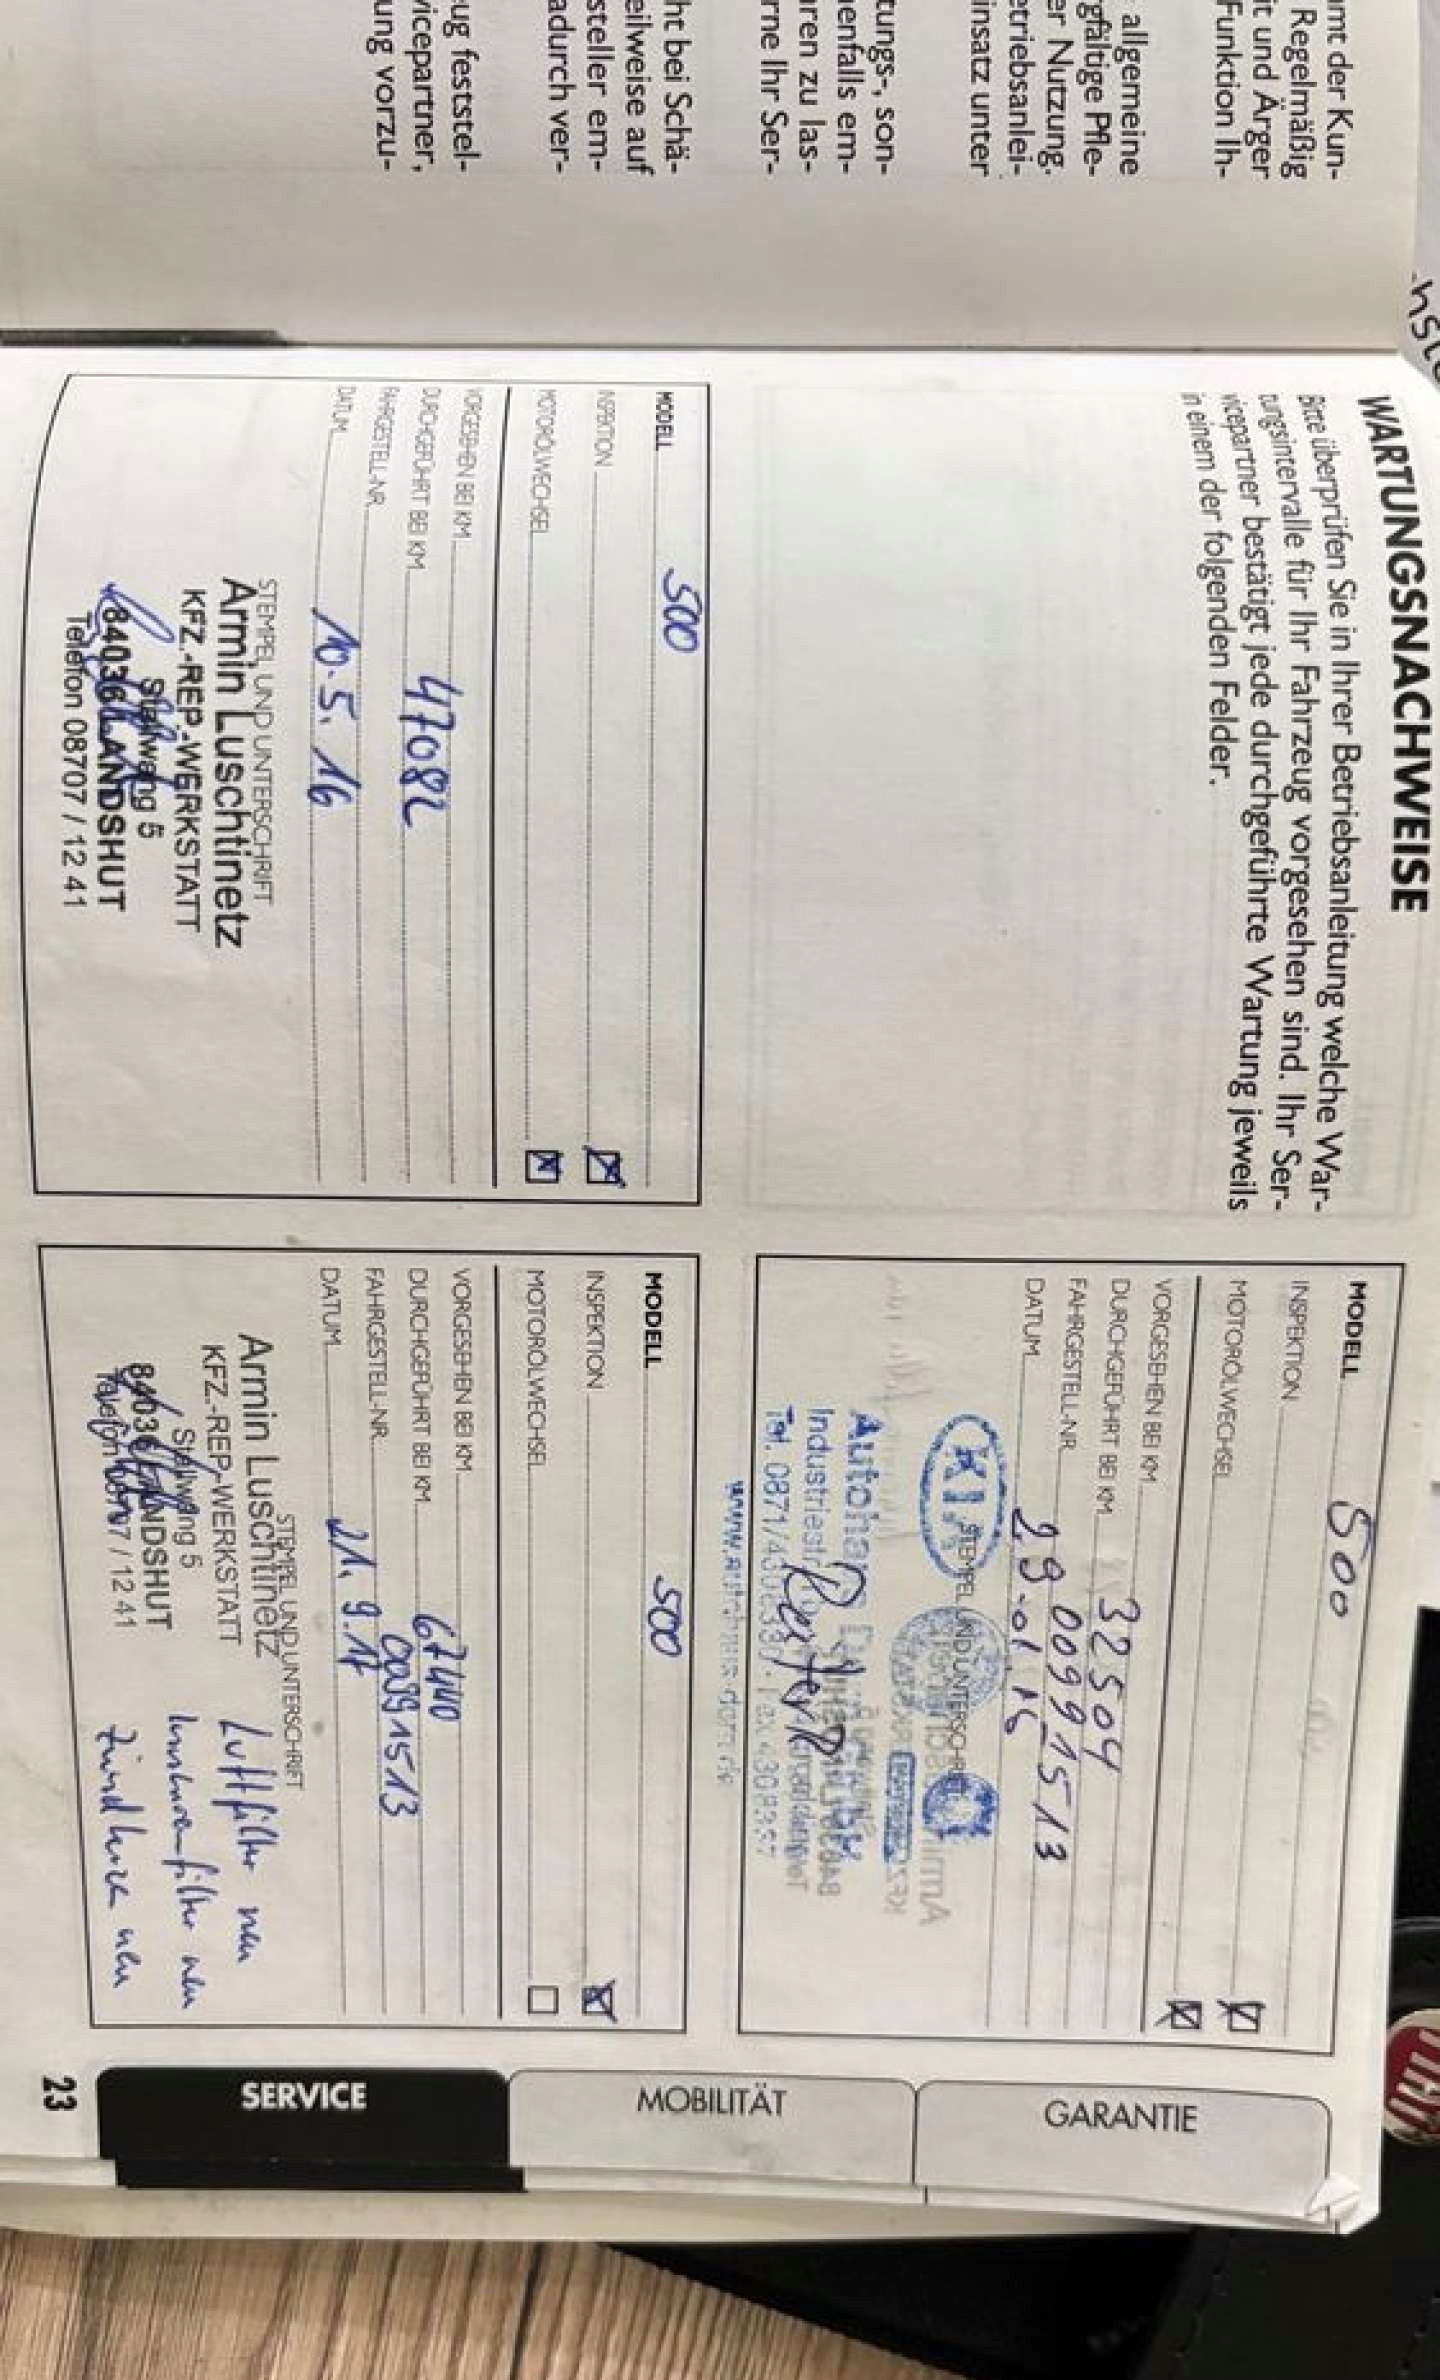 mt der Kun-
Regelmäßig
it und Ärger
Funktion Ih-
allgemeine
gfältige Pfle-
er Nutzung.
etriebsanlei-
insatz unter
tungs-, son-
enfalls em-
ren zu las-
rne Ihr Ser-
ht bei Schä-
eilweise auf
steller em-
adurch ver-
ug feststel-
vicepartner,
ung vorzu-
WARTUNGSNACHWEISE
Bitte überprüfen Sie in Ihrer Betriebsanleitung welche War-
tungsintervalle für Ihr Fahrzeug vorgesehen sind. Ihr Ser-
vicepartner bestätigt jede durchgeführte Wartung jeweils
in einem der folgenden Felder.
MODELL 500
INSPEKTION
MOTORÖLWECHSEL
VORGESEHEN BEI KM
DURCHGEFÜHRT BEI KM 32504
FAHRGESTELL-NR. 00991513
DATUM 29.01.15
STEMPEL UND UNTERSCHRIFT
KIA
Autohaus
Industriestr.
Tel. 0871/
MODELL 500
INSPEKTION
MOTORÖLWECHSEL
VORGESEHEN BEI KM
DURCHGEFÜHRT BEI KM 47082
FAHRGESTELL-NR.
DATUM 10.5.16
STEMPEL UND UNTERSCHRIFT
Armin Luschtinetz
KFZ.-REP.-WERKSTATT
Stallwang 5
84036 LANDSHUT
Telefon 08707 / 12 41
MODELL 500
INSPEKTION
MOTORÖLWECHSEL
VORGESEHEN BEI KM
DURCHGEFÜHRT BEI KM 67440
FAHRGESTELL-NR. 00991513
DATUM 21.9.17
STEMPEL UND UNTERSCHRIFT
Armin Luschtinetz
KFZ.-REP-WERKSTATT
Stallwang 5
84036 LANDSHUT
Telefon 08707 / 12 41
Luftfilter neu
Innenraumfilter neu
Zündkerzen neu
GARANTIE
MOBILITÄT
SERVICE
23